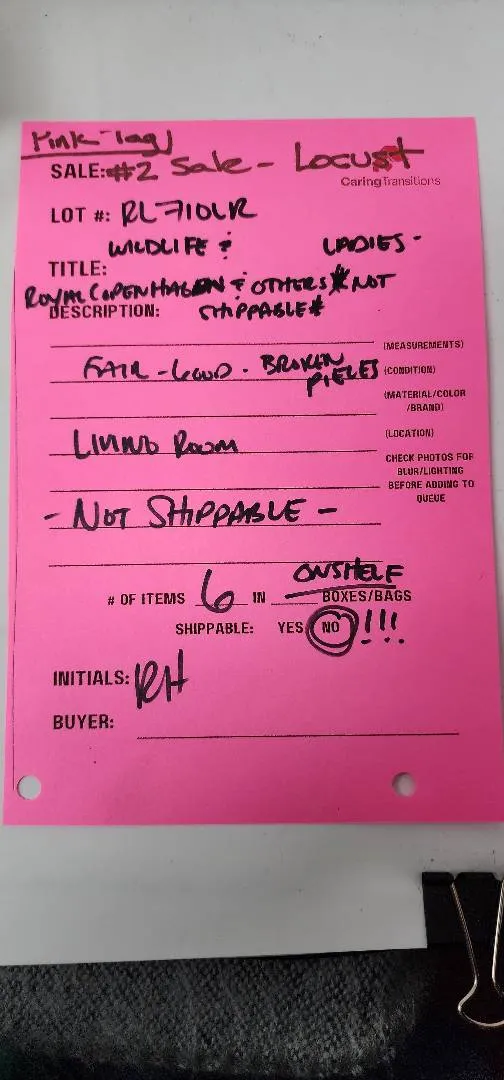 Pink-Tag
SALE: #2 Sale - Locust
CaringTransitions
LOT #: RL710LR
WILDLIFE & LADIES -
TITLE:
ROYAL COPENHAGEN & OTHERS * NOT
DESCRIPTION: SHIPPABLE*
(MEASUREMENTS)
FAIR - GOOD - BROKEN PIECES (CONDITION)
(MATERIAL/COLOR
/BRAND)
LIVING ROOM (LOCATION)
CHECK PHOTOS FOR
BLUR/LIGHTING
BEFORE ADDING TO
QUEUE
- NOT SHIPPABLE -
ON SHELF
# OF ITEMS 6 IN BOXES/BAGS
SHIPPABLE: YES NO !!!
INITIALS: RH
BUYER: